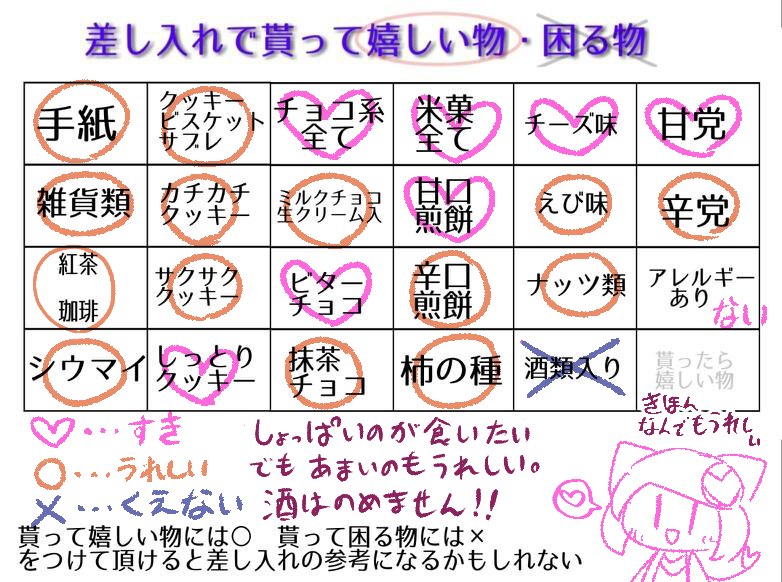 差し入れで貰って嬉しい物・困る物
手紙
クッキー
ビスケット
サブレ
チョコ系
全て
米菓
全て
チーズ味
甘党
雑貨類
カチカチ
クッキー
ミルクチョコ
生クリーム入
甘口
煎餅
えび味
辛党
紅茶
珈琲
サクサク
クッキー
ビター
チョコ
辛口
煎餅
ナッツ類
アレルギー
あり
ない
シウマイ
しっとり
クッキー
抹茶
チョコ
柿の種
酒類入り
貰ったら
嬉しい物
きほん
なんでもうれしい
♡・・・すき
○・・・うれしい
×・・・くえない
しょっぱいのが食いたい
でもあまいのもうれしい。
酒はのめません!!
貰って嬉しい物には○ 貰って困る物には×
をつけて頂けると差し入れの参考になるかもしれない